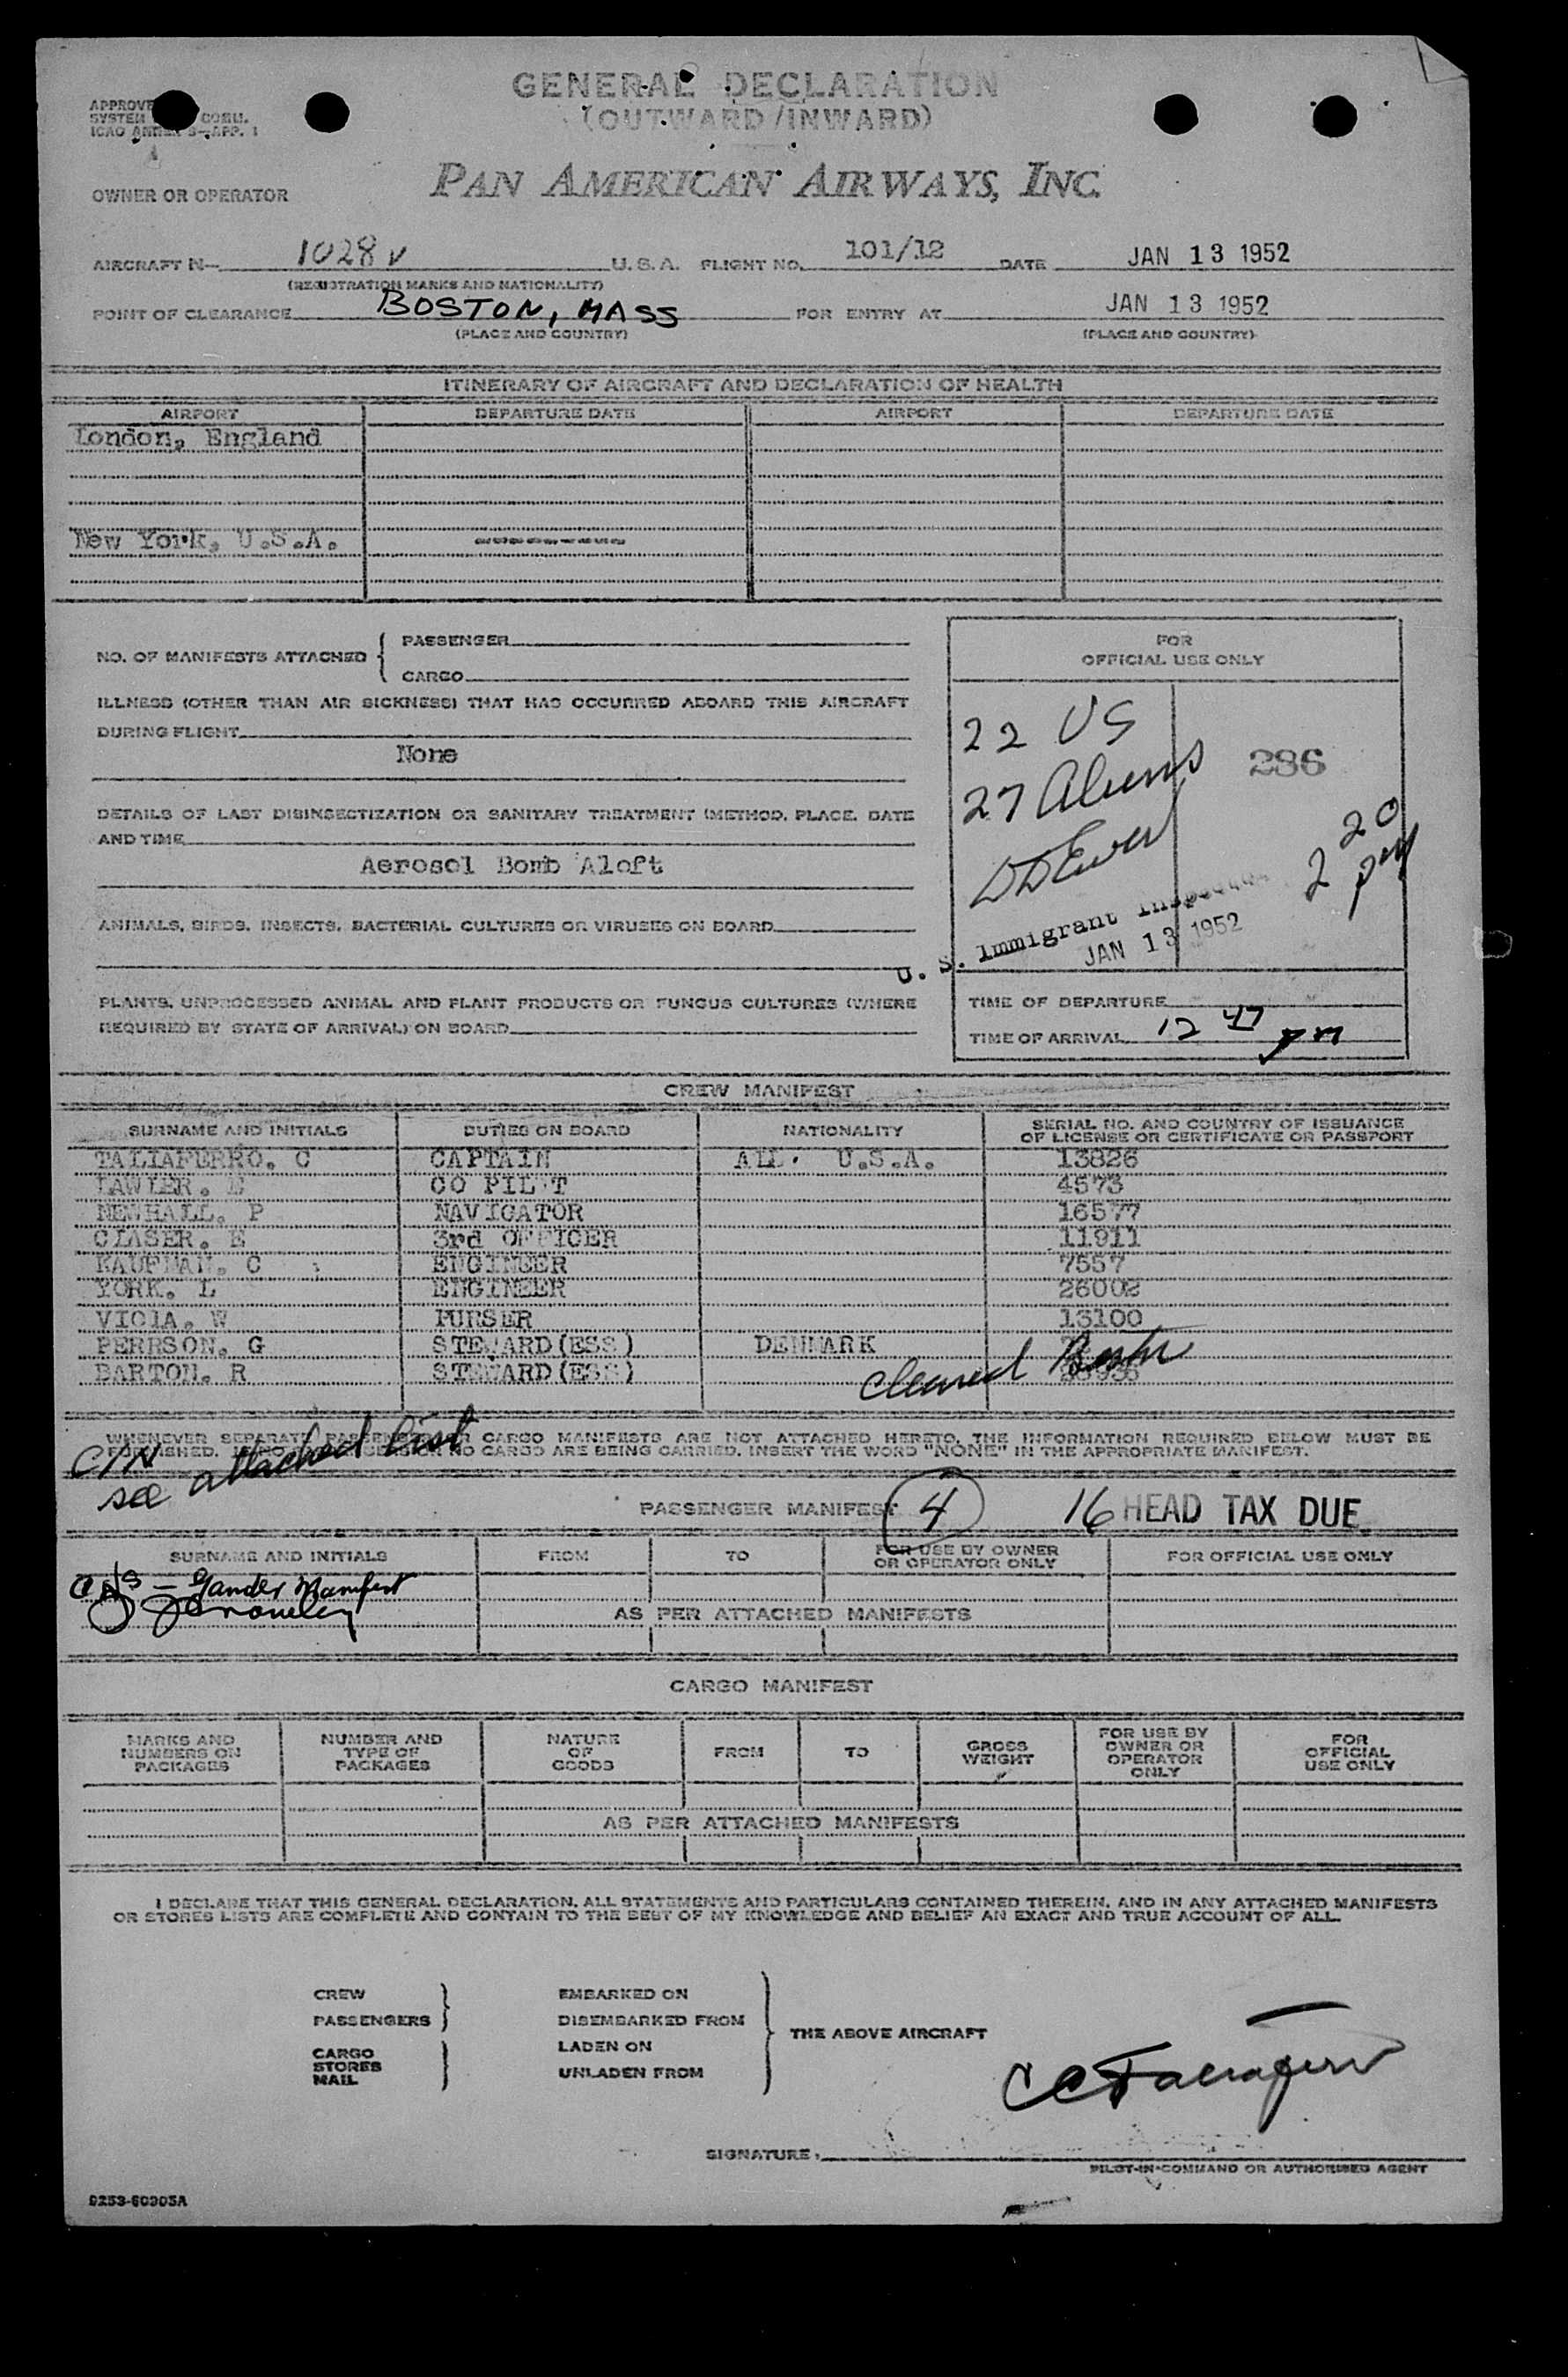 GENERAL DECLARATION
(OUTWARD/INWARD)
APPROVE
SYSTEM COMM.
ICAO ANNEX 9—APP. 1
OWNER OR OPERATOR
PAN AMERICAN AIRWAYS, INC.
AIRCRAFT N— 1028 V U.S.A. FLIGHT NO. 101/12 DATE JAN 13 1952
(REGISTRATION MARKS AND NATIONALITY)
POINT OF CLEARANCE BOSTON, MASS FOR ENTRY AT JAN 13 1952
(PLACE AND COUNTRY) (PLACE AND COUNTRY)
ITINERARY OF AIRCRAFT AND DECLARATION OF HEALTH
AIRPORT DEPARTURE DATE AIRPORT DEPARTURE DATE
London, England
New York, U.S.A. -------------
NO. OF MANIFESTS ATTACHED { PASSENGER
CARGO
ILLNESS (OTHER THAN AIR SICKNESS) THAT HAS OCCURRED ABOARD THIS AIRCRAFT
DURING FLIGHT
None
DETAILS OF LAST DISINSECTIZATION OR SANITARY TREATMENT (METHOD, PLACE, DATE
AND TIME
Aerosol Bomb Aloft
ANIMALS, BIRDS, INSECTS, BACTERIAL CULTURES OR VIRUSES ON BOARD
PLANTS, UNPROCESSED ANIMAL AND PLANT PRODUCTS OR FUNGUS CULTURES (WHERE
REQUIRED BY STATE OF ARRIVAL) ON BOARD
FOR
OFFICIAL USE ONLY
22 US
27 Aliens
286
2 20 pm
U. S. Immigrant Inspector
JAN 13 1952
TIME OF DEPARTURE
TIME OF ARRIVAL 12 47 pm
CREW MANIFEST
SURNAME AND INITIALS DUTIES ON BOARD NATIONALITY SERIAL NO. AND COUNTRY OF ISSUANCE
OF LICENSE OR CERTIFICATE OR PASSPORT
TALIAFERRO. C CAPTAIN ALL. U.S.A. 13826
LAWLER. E CO PILOT 4573
NEWHALL. P NAVIGATOR 16577
CLASER. E 3rd OFFICER 11911
KAUFMAN. C ENGINEER 7557
YORK. L ENGINEER 26002
VIOLA. W PURSER 13100
PERRSON. G STEWARD(ESS) DENMARK
BARTON. R STEWARD(ESS)
cleared Boston
WHENEVER SEPARATE PASSENGER OR CARGO MANIFESTS ARE NOT ATTACHED HERETO, THE INFORMATION REQUIRED BELOW MUST BE
FURNISHED. NO CARGO ARE BEING CARRIED, INSERT THE WORD "NONE" IN THE APPROPRIATE MANIFEST.
C/N
see attached list
PASSENGER MANIFEST 4 16 HEAD TAX DUE
SURNAME AND INITIALS FROM TO FOR USE BY OWNER
OR OPERATOR ONLY FOR OFFICIAL USE ONLY
— Gander Manifest
AS PER ATTACHED MANIFESTS
CARGO MANIFEST
MARKS AND
NUMBERS ON
PACKAGES
NUMBER AND
TYPE OF
PACKAGES
NATURE
OF
GOODS
FROM
TO
GROSS
WEIGHT
FOR USE BY
OWNER OR
OPERATOR
ONLY
FOR
OFFICIAL
USE ONLY
AS PER ATTACHED MANIFESTS
I DECLARE THAT THIS GENERAL DECLARATION, ALL STATEMENTS AND PARTICULARS CONTAINED THEREIN, AND IN ANY ATTACHED MANIFESTS
OR STORES LISTS ARE COMPLETE AND CONTAIN TO THE BEST OF MY KNOWLEDGE AND BELIEF AN EXACT AND TRUE ACCOUNT OF ALL.
CREW
PASSENGERS }
CARGO
STORES
MAIL }
EMBARKED ON
DISEMBARKED FROM
LADEN ON
UNLADEN FROM
} THE ABOVE AIRCRAFT
CC Taliaferro
SIGNATURE,
PILOT-IN-COMMAND OR AUTHORISED AGENT
9253-60905A